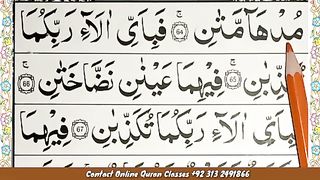 مُدْهَآ مَّتٰنِ ۚ ﴿64﴾ فَبِاَیِّ اٰلَآءِ رَبِّكُمَا
تُكَذِّبٰنِ ۚ ﴿65﴾ فِیْهِمَا عَیْنٰنِ نَضَّاخَتٰنِ ۚ ﴿66﴾
فَبِاَیِّ اٰلَآءِ رَبِّكُمَا تُكَذِّبٰنِ ﴿67﴾ فِیْهِمَا
Contact Online Quran Classes +92 313 2491866